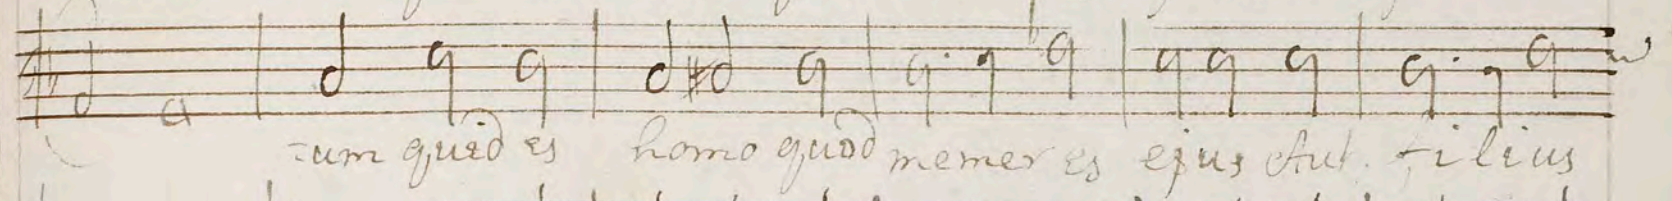 rum quid es homo quod memor es ejus Aut filius